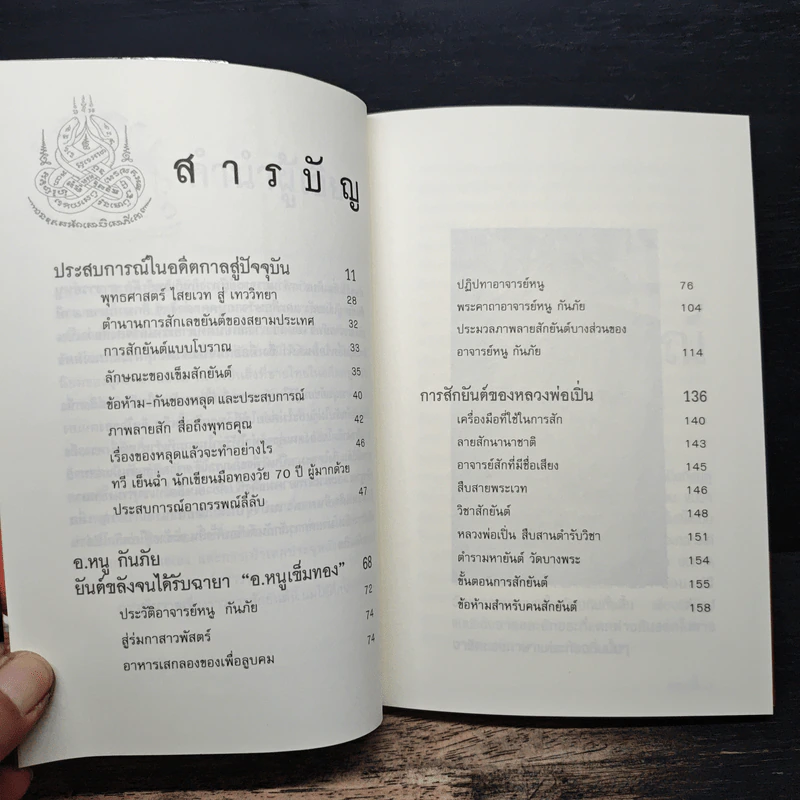 สารบัญ
ประสบการณ์ในอดีตกาลสู่ปัจจุบัน 11
พุทธศาสตร์ ไสยเวท สู่ เทววิทยา 28
ตำนานการสักเลขยันต์ของสยามประเทศ 32
การสักยันต์แบบโบราณ 33
ลักษณะของเข็มสักยันต์ 35
ข้อห้าม-กันของหลุด และประสบการณ์ 40
ภาพลายสัก สื่อถึงพุทธคุณ 42
เรื่องของหลุดแล้วจะทำอย่างไร 46
ทวี เย็นฉ่ำ นักเขียนมือทองวัย 70 ปี ผู้มากด้วย
ประสบการณ์อาถรรพณ์ลี้ลับ 47
อ.หนู กันภัย
ยันต์ขลังจนได้รับฉายา “อ.หนูเข็มทอง” 68
ประวัติอาจารย์หนู กันภัย 72
สู่ร่มกาสาวพัสตร์ 74
อาหารเสกลองของเพื่อลูบคม 74
ปฏิปทาอาจารย์หนู 76
พระคาถาอาจารย์หนู กันภัย 104
ประมวลภาพลายสักยันต์บางส่วนของ
อาจารย์หนู กันภัย 114
การสักยันต์ของหลวงพ่อเปิ่น 136
เครื่องมือที่ใช้ในการสัก 140
ลายสักนานาชาติ 143
อาจารย์สักที่มีชื่อเสียง 145
สืบสายพระเวท 146
วิชาสักยันต์ 148
หลวงพ่อเปิ่น สืบสานตำรับวิชา 151
ตำรามหายันต์ วัดบางพระ 154
ขั้นตอนการสักยันต์ 155
ข้อห้ามสำหรับคนสักยันต์ 158